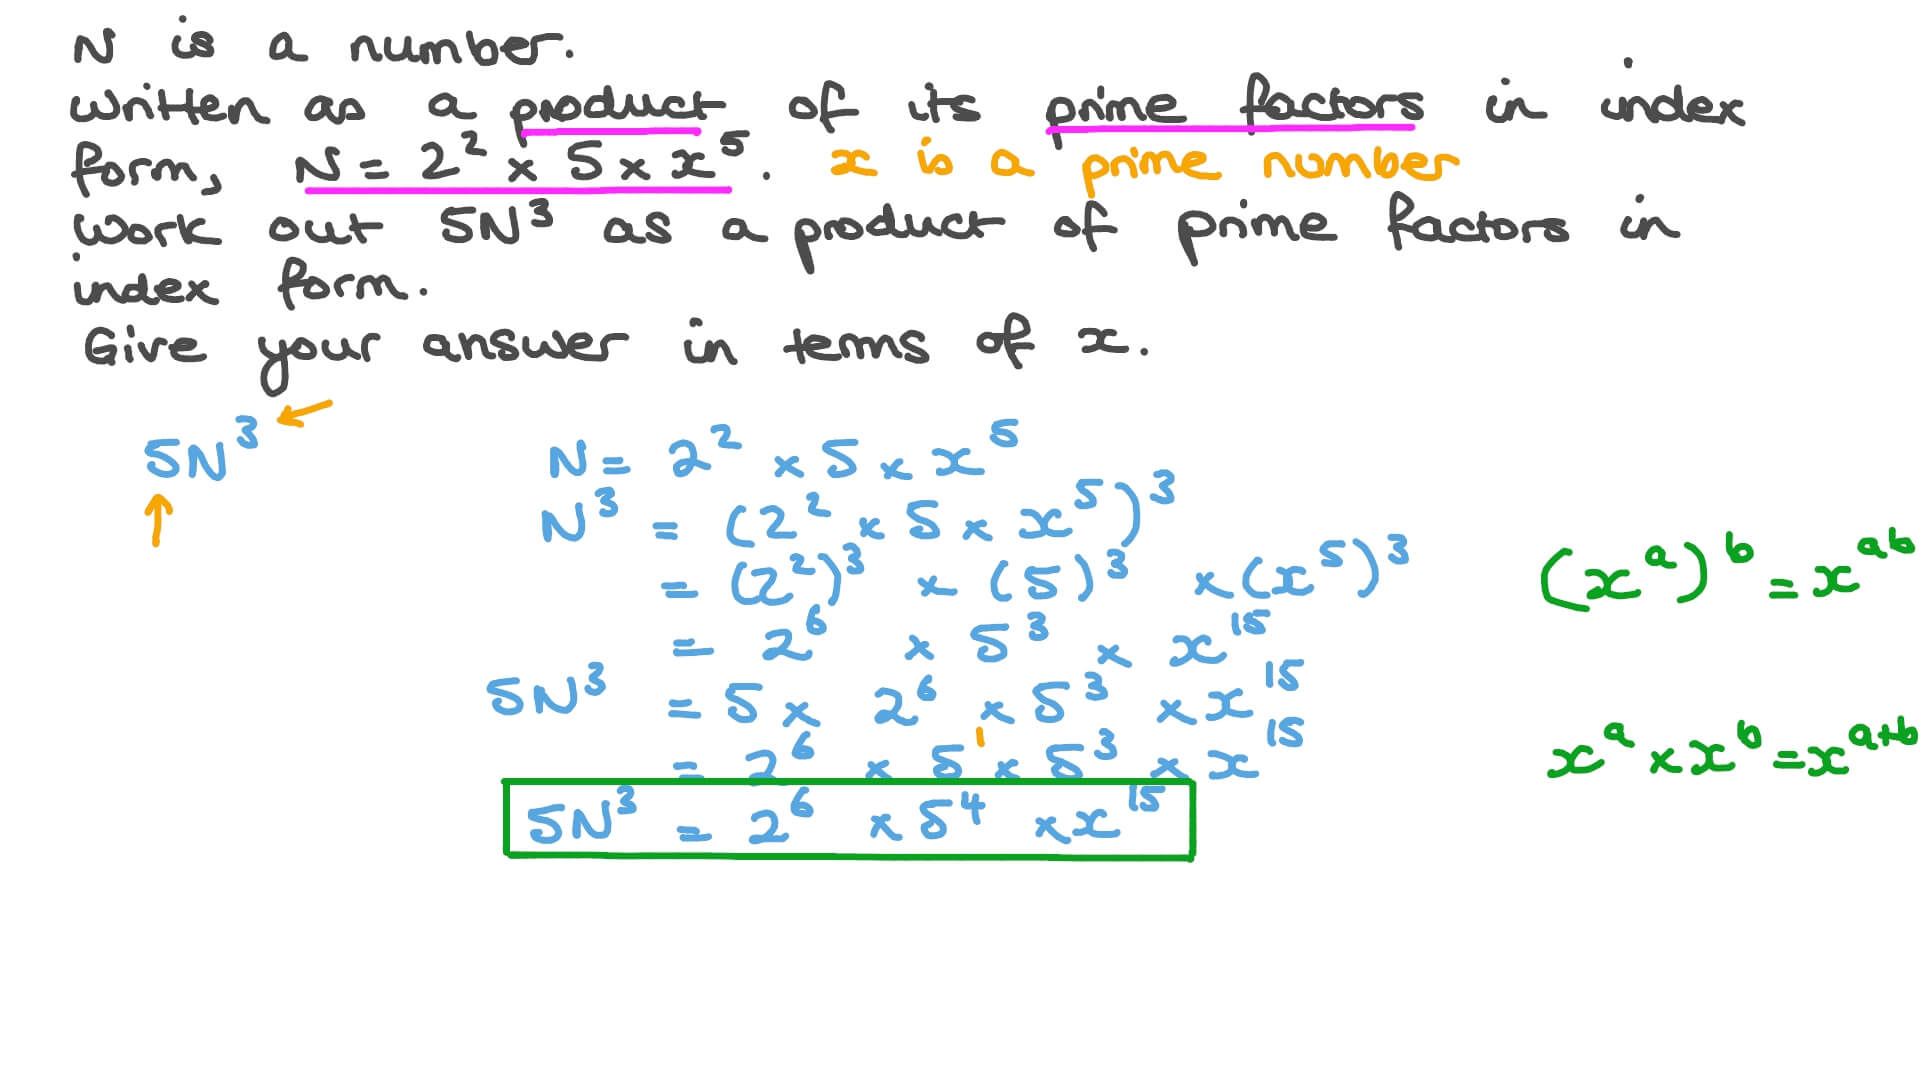 N is a number.
Written as a product of its prime factors in index
form, N = 2² × 5 × x⁵. x is a prime number
Work out 5N³ as a product of prime factors in
index form.
Give your answer in terms of x.
5N³ ←
↑
N = 2² × 5 × x⁵
N³ = (2² × 5 × x⁵)³
= (2²)³ × (5)³ × (x⁵)³
(xᵃ)ᵇ = xᵃᵇ
= 2⁶ × 5³ × x¹⁵
5N³ = 5 × 2⁶ × 5³ × x¹⁵
= 2⁶ × 5¹ × 5³ × x¹⁵
xᵃ × xᵇ = xᵃ⁺ᵇ
5N³ = 2⁶ × 5⁴ × x¹⁵